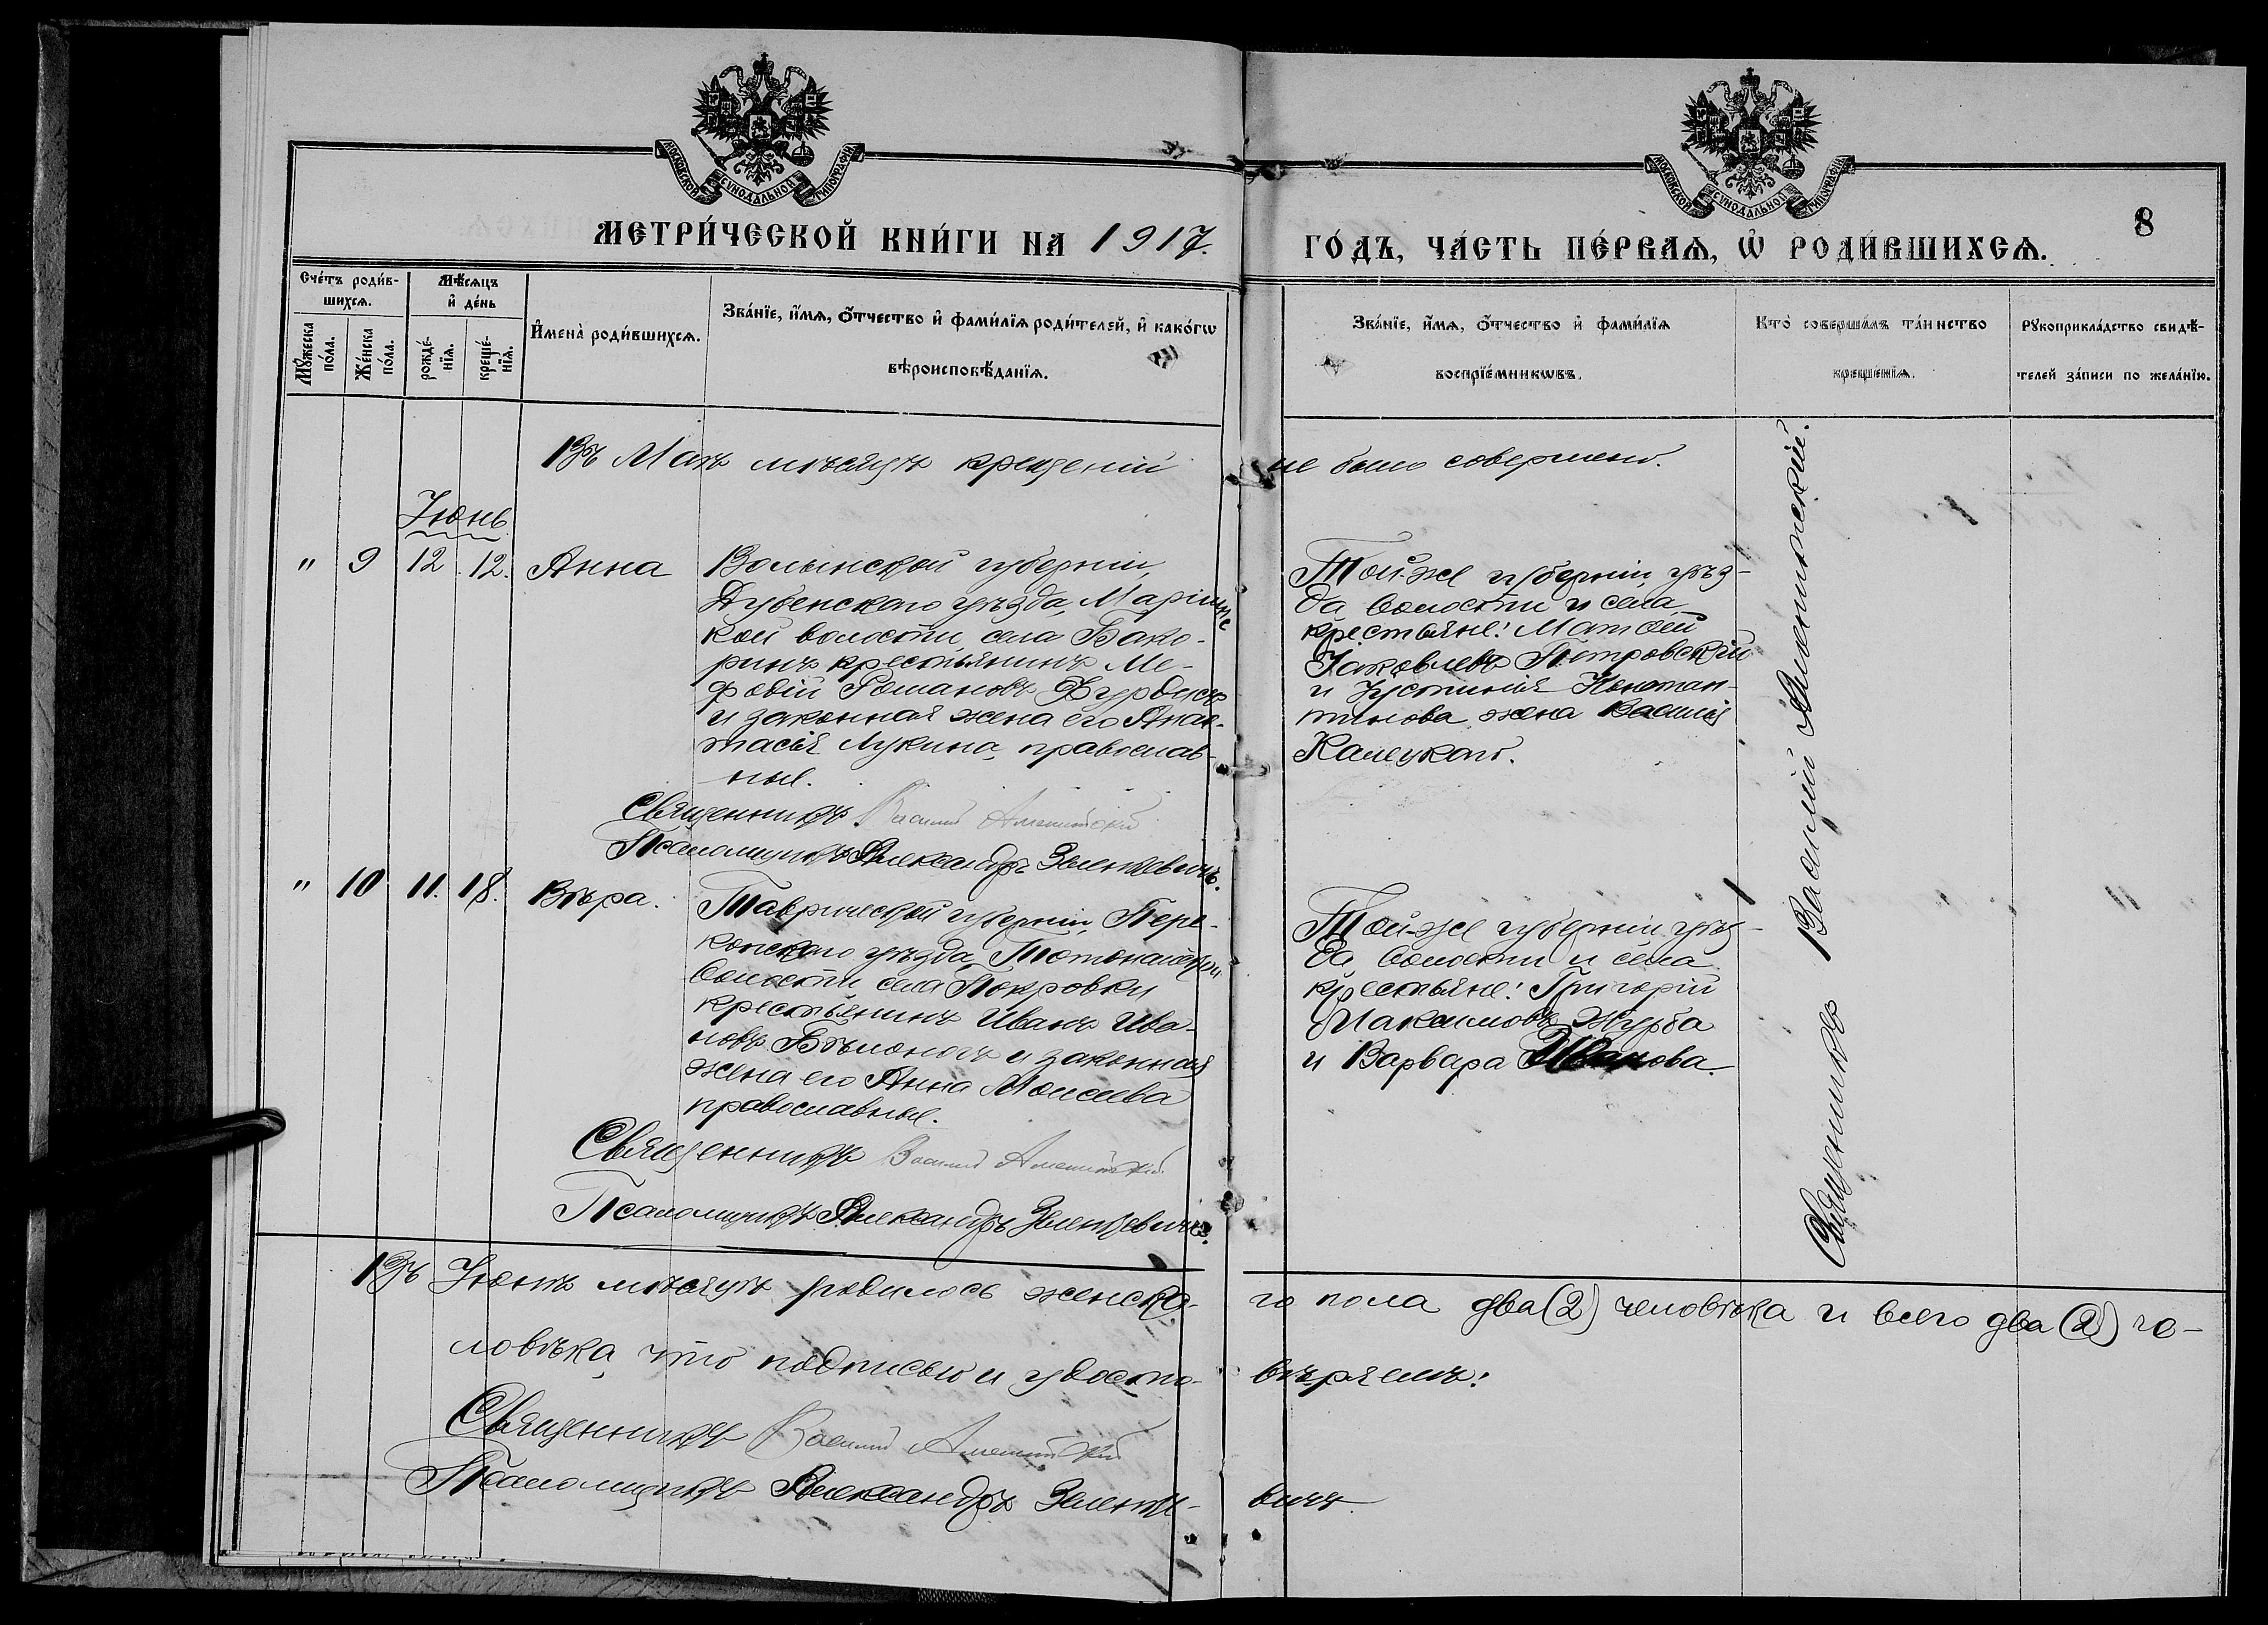 МОСКОВСКОЙ СѴНОДАЛЬНОЙ ТИПОГРАФІИ
МОСКОВСКОЙ СѴНОДАЛЬНОЙ ТИПОГРАФІИ
МЕТРИ́ЧЕСКОЙ КНИ́ГИ НА 1917.
ГО́ДЪ, ЧА́СТЬ ПЕ́РВАѦ, Ѡ҆ РОДИ́ВШИХСѦ.
8
Сче́тъ роди́в-
шихсѧ.
Мѣ́сѧцъ
и҆ де́нь
Мꙋ́жеска по́ла.
Же́нска по́ла.
рожде́-
нїѧ.
креще́-
нїѧ.
И҆мена̀ роди́вшихсѧ.
Зва́нїе, и҆́мѧ, ѻ҆́тчество и҆ фами́лїѧ роди́телей, и҆ како́гѡ
вѣроисповѣ́данїѧ.
Зва́нїе, и҆́мѧ, ѻ҆́тчество и҆ фами́лїѧ
воспрїе́мникѡвъ.
Кто̀ соверша́лъ та́инство
креще́нїѧ.
Рꙋкоприкла́дство свидѣ́-
телей за́писи по жела́нїю.
Въ Маѣ мѣсяцѣ крещеній
не было совершено.
Іюнь
" 9 12 12. Анна
Волынской губерніи,
Дубенскаго уѣзда, Маріинс
кой волости, села Бако-
ринъ крестьянинъ Ме-
фодій Романовъ
и законная жена его Анас-
тасія Лукина, православ-
ные.
Священникъ Василій
Псаломщикъ Александръ Зенькевичъ.
Той-же губерніи, уѣз-
да волости и села
крестьяне: Матѳей
Іаковлевъ Петровскій
и Іустинія Констан-
тинова жена Василія
Калецкаго.
" 10 11. 18. Вѣра.
Таврической губерніи, Пере-
копскаго уѣзда,
волости села Покровки
крестьянинъ Иванъ Ива-
новъ Бѣлоногъ и законная
жена его Анна Моисеева
православные.
Священникъ Василій
Псаломщикъ Александръ Зенькевичъ.
Той-же губерніи, уѣз-
да, волости и села
крестьяне: Григорій
Максимовъ Журба
и Варвара Иванова.
Священникъ Василій
Въ Іюнѣ мѣсяцѣ родилось женска-
го пола два (2) человѣка и всего два (2) че-
ловѣка, что подписью и удосто-
вѣряемъ:
Священникъ Василій
Псаломщикъ Александръ Зеньке-
вичъ.